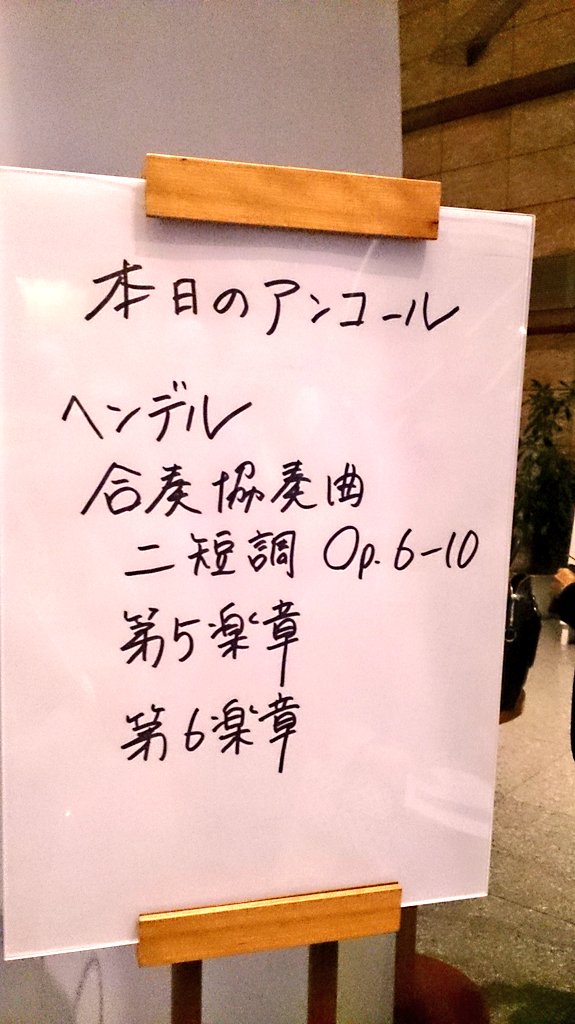 本日のアンコール
ヘンデル
合奏協奏曲
ニ短調 Op.6-10
第5楽章
第6楽章